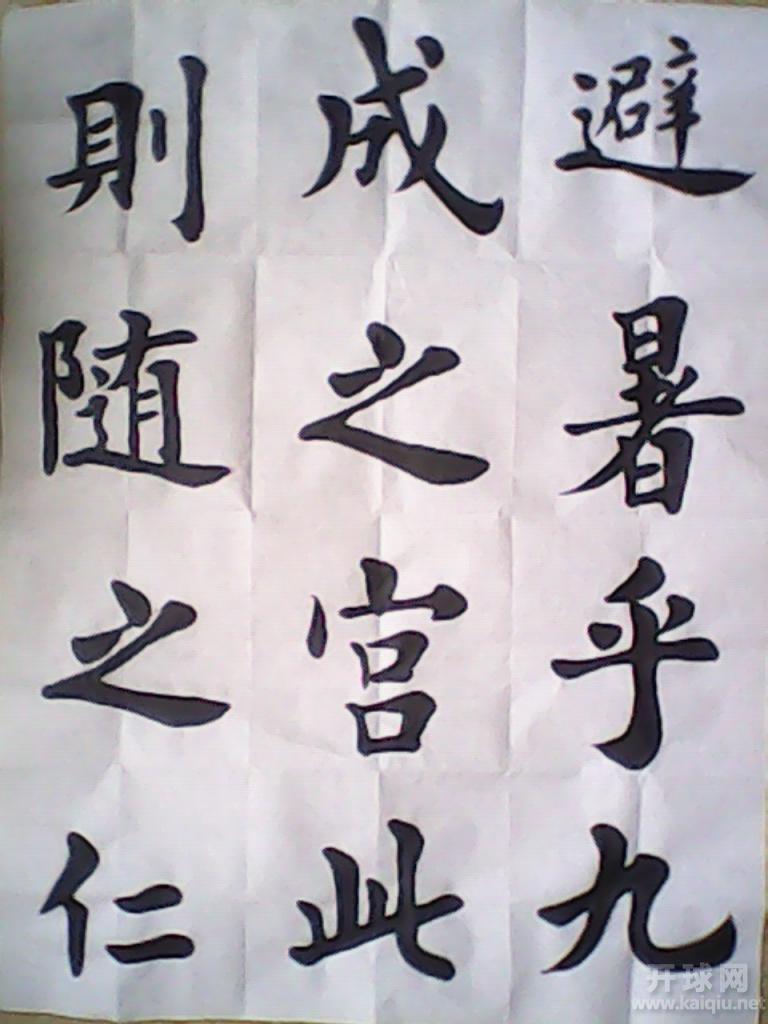 避暑乎九
成之宫此
則随之仁
开球网
www.kaiqiu.net